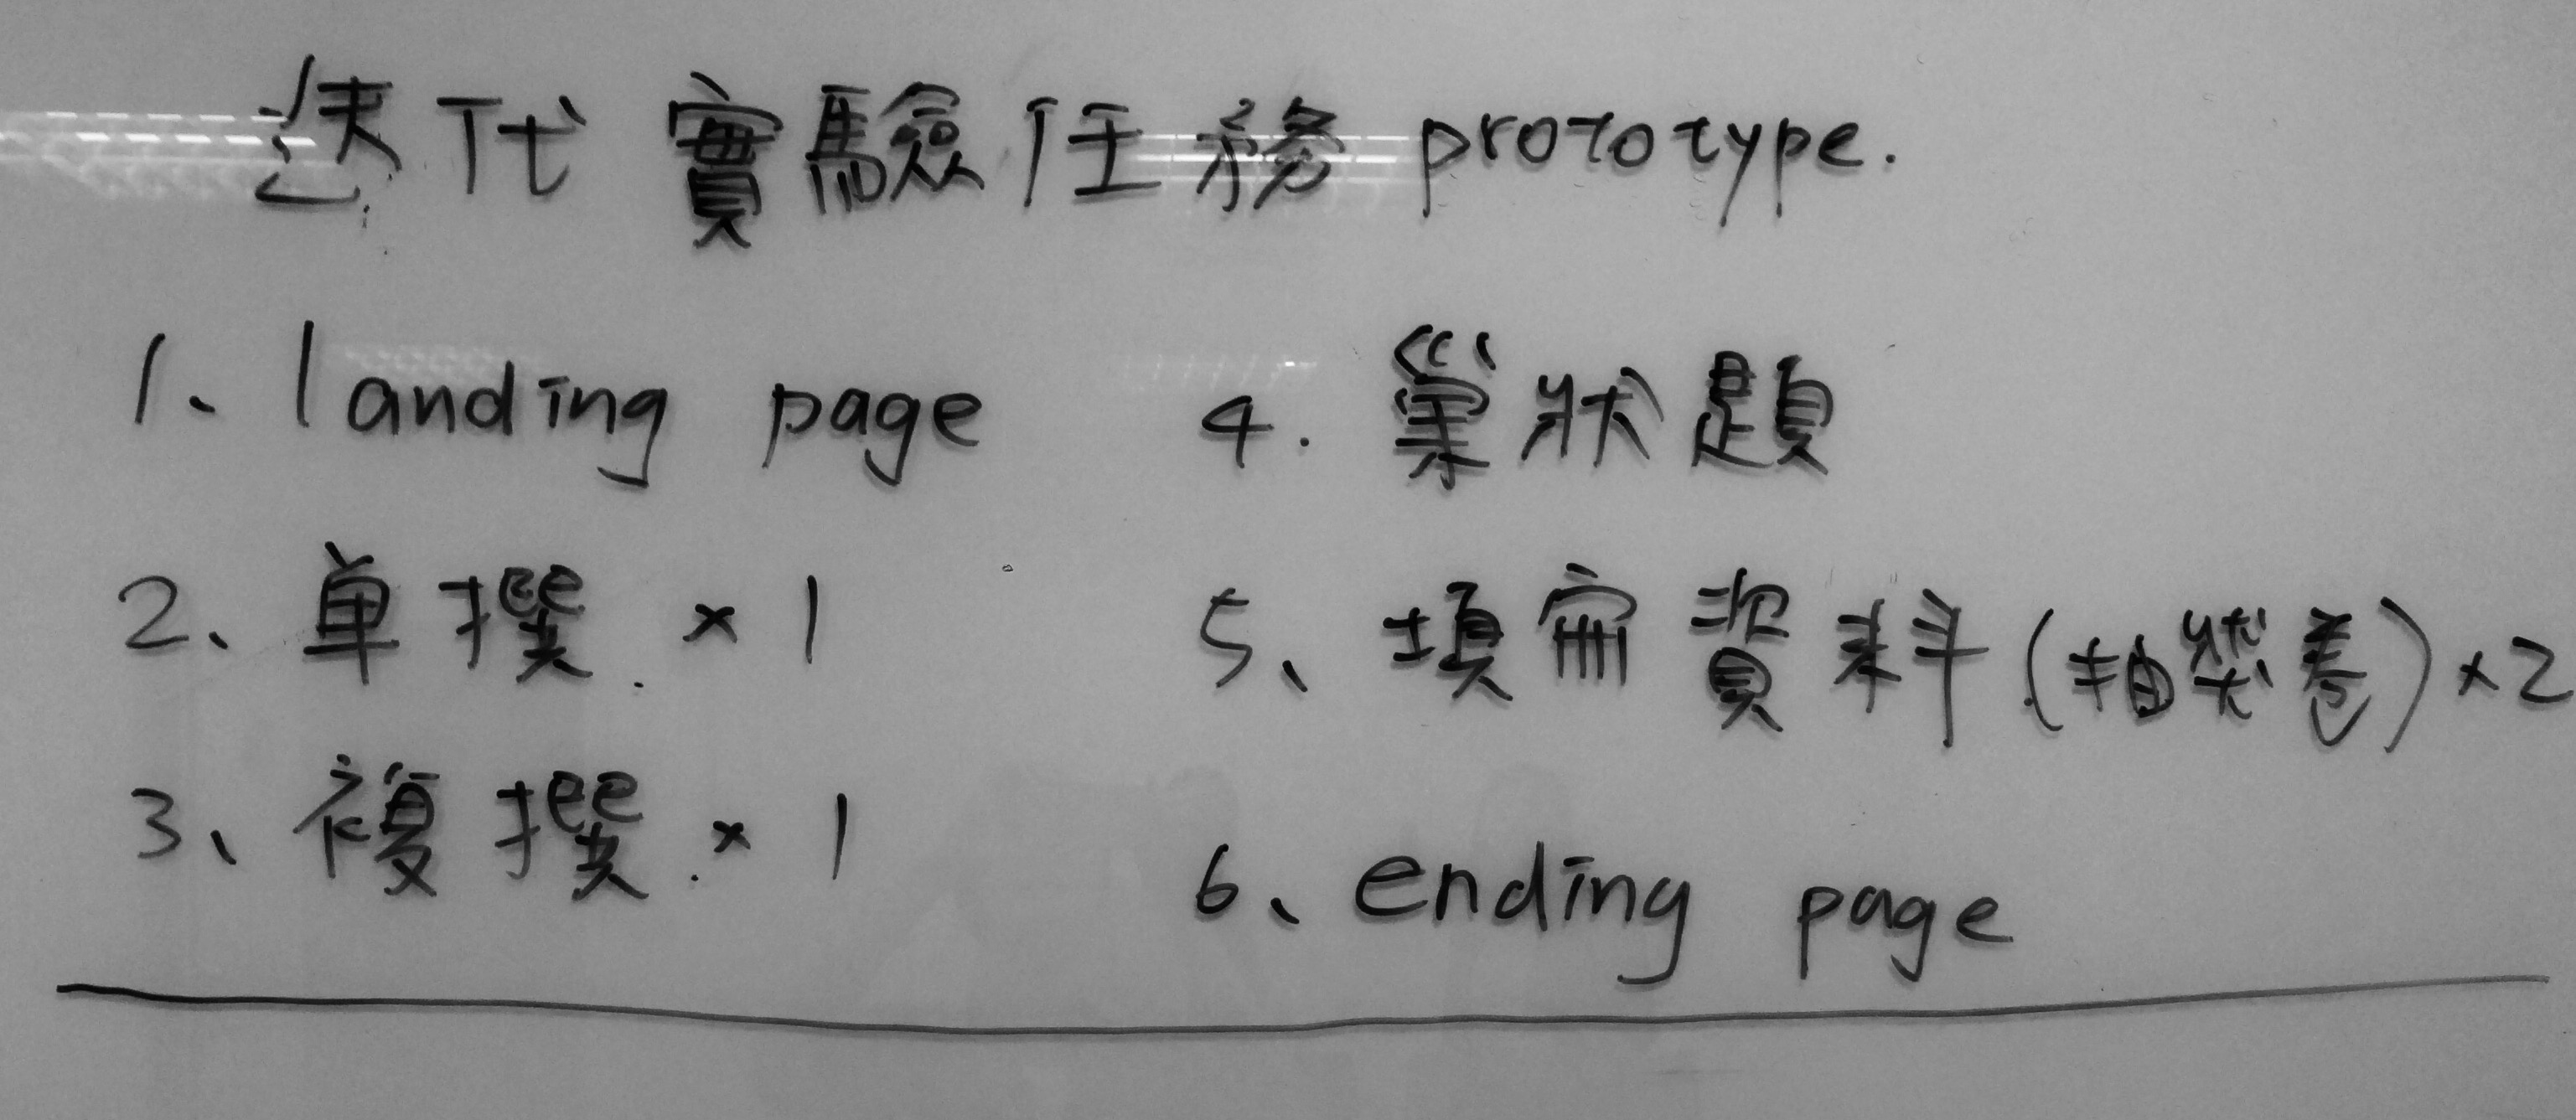 迭代實驗任務 prototype.
1、landing page
2、单撰. × 1
3、複撰. × 1
4. 巢狀題
5、填寫資料(抽獎卷)×2
6、ending page